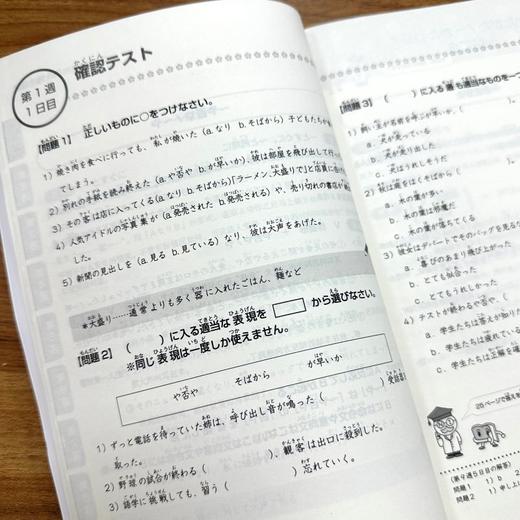 第1週
1日目
確認テスト
【問題1】 正しいものに○をつけなさい。
1) 焼き肉を食べに行っても、私が焼いた（a.なり b.そばから）子どもたちが
てしまう。
2) 別れの手紙を読み終えた（a.や否や b.が早いか）、彼は部屋を飛び出して行っ
3) その客は店に入ってくる（a.なり b.そばから）「ラーメン、大盛りで」と店員に
4) 人気アイドルの写真集が（a.発売された b.発売される）や、売り切れの書店が
した。
5) 新聞の見出しを（a.見る b.見ている）なり、彼は大声をあげた。
*大盛り……通常よりも多く器に入れたごはん、麺など
【問題2】 （ ）に入る適当な表現を から選びなさい。
※同じ表現は一度しか使えません。
や否や そばから が早いか
1) ずっと電話を待っていた姉は、呼び出し音が鳴った（ ）受話器
取った。
2) 野球の試合が終わる（ ）、観客は出口に殺到した。
3) 語学に挑戦しても、習う（ ）忘れていく。
【問題3】 （ ）に入る最も適当なものを一つ
1) 飼い主が名前を呼ぶが早いか（ ）。
a. 犬が走っている
b. 犬が走り出した
c. 犬はうれしそうだ
2) 庭を掃くそばから（ ）。
a. 木の葉が多い
b. 木の葉は綺麗だ
c. 木の葉が落ちてくる
3) 彼女はデパートでそのバッグを見るな
a. 喜びのあまり飛び上がった
b. とても似合った
c. とてもうれしかった
4) テストが終わるや否や、
a. 学生たちは答えが知りた
b. 学生たちは疲れている
c. 学生たちは正解を確
26ページで答えを
(第9週5日目の解答)
問題1 1) b 2
問題2 1) 申し上